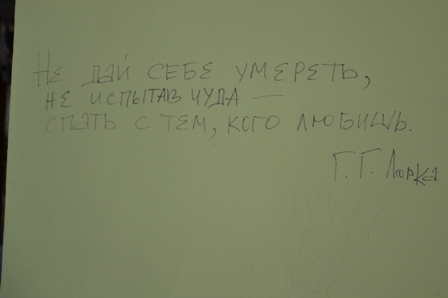 Не дай себе умереть,
не испытав чуда —
спать с тем, кого любишь.
Г.Г. Лорка